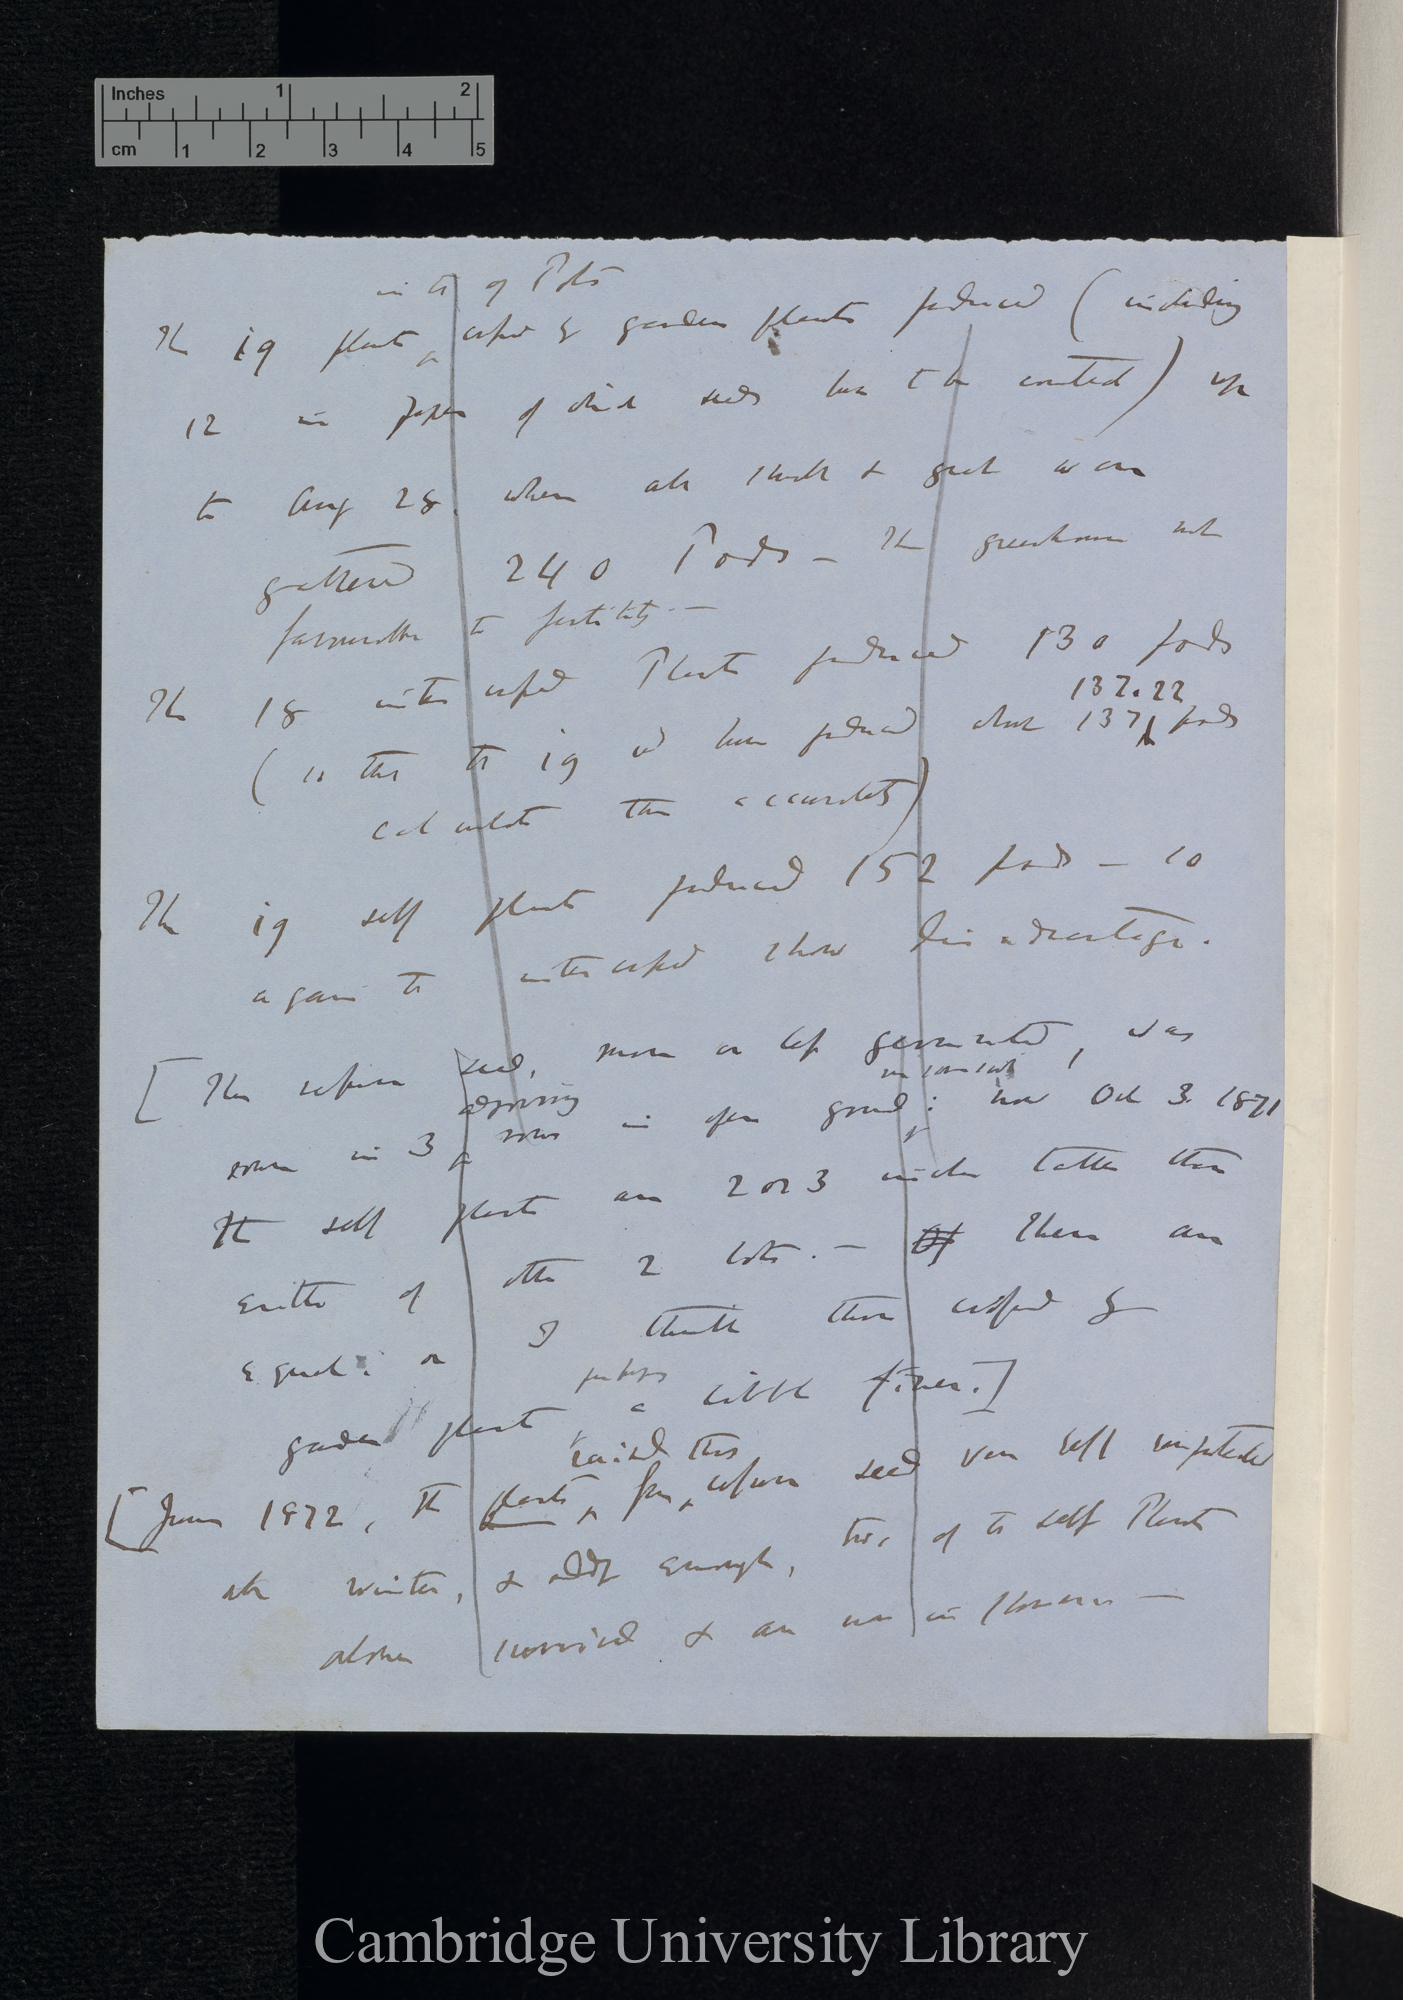 Inches 1 2
cm 1 2 3 4 5
in the 4 Pots
The 19 plants crossed by garden plants produced (including
12 in paper of which seeds have to be counted) up
to Aug 28. when all small & great were
gathered 240 Pods — The greenhouse not
favourable to fertility. —
The 18 intercrossed Plants produced 130 pods
137.22
( so that the 19 wd have produced about 137 pods
calculate this accurately)
The 19 self plants produced 152 pods — so
again the intercrossed show disadvantage.
[ The refuse seed, more or less germinated, was
sown in 3 adjoining rows in open ground; now Oct 3. 1871
The self plants are 2 or 3 inches taller than
either of other 2 lots. — There are
equal: or I think those crossed by
garden plants, perhaps a little finer.]
[June 1872, the plants raised thus from refuse seed were self
all winter, & oddly enough, two of the self Plants
alone survived & are now in flower —
Cambridge University Library